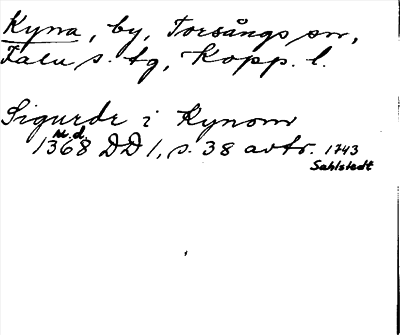 Kyna, by, Torsångs sn,
Falu s. tg, Kopp. l.
Sigurdr i Kynom
m. d.
1368 DD 1, s. 38 avtr. 1743
Sahlstedt